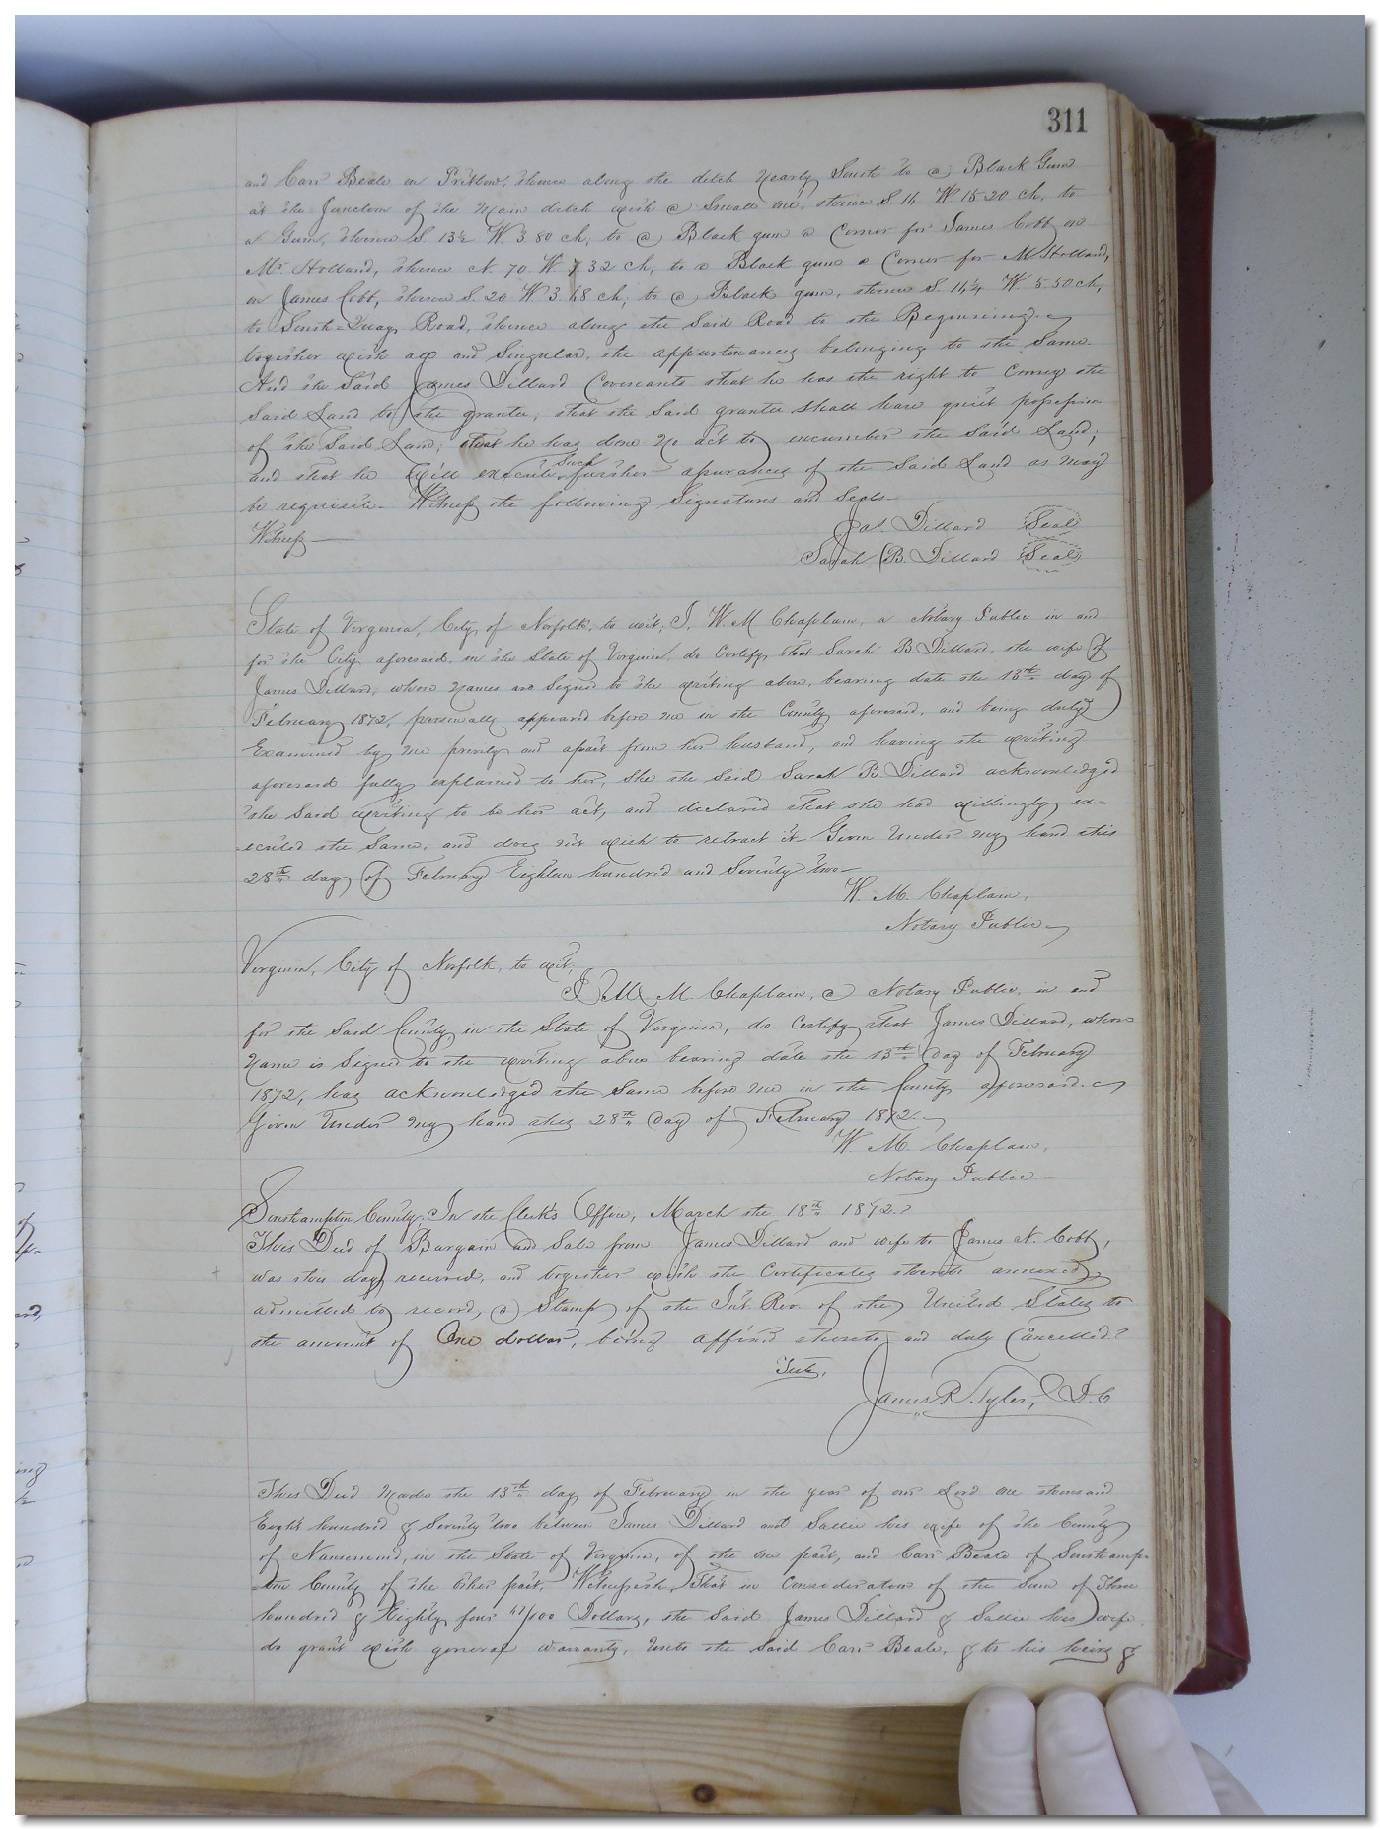 311
and Carr Beale on Pretlow, thence along the ditch nearly South to a Black Gum
at the Junction of the Main ditch with a Small one, thence S. 16 W 15 20 ch, to
a Gum, thence S. 13½ W 3 80 ch, to a Black gum a Corner for James Cobb on
Mr Holland, thence N. 70 W 7 32 ch, to a Black gum a Corner for M Holland,
on James Cobb, thence S. 20 W 3. 48 ch, to a Black gum, thence S. 14¾ W 5.50 ch,
to South-Quay Road, thence along the Said Road to the Beginning
together with all and Singular, the appurtenances belonging to the Same.
And the Said James Dillard Covenants that he has the right to Convey the
Said Land to the grantee, that the Said grantee Shall have quiet possession
of the Said Land; that he has done no act to encumber the Said Land;
and that he will execute Such further assurances of the Said Land as may
be requisite. Witness the following Signatures and Seals
Jas. Dillard Seal
Witness
Sarah B. Dillard Seal
State of Virginia, City of Norfolk, to wit; I, W. M Chaplain, a Notary Public in and
for the City aforesaid, in the State of Virginia, do Certify that Sarah B Dillard, the wife of
James Dillard, whose names are Signed to the writing above, bearing date the 13th day of
February 1872, personally appeared before me in the County aforesaid, and being duly
Examined by me privily and apart from her husband, and having the writing
aforesaid fully explained to her, She the Said Sarah B. Dillard acknowledged
the Said writing to be her act, and declared that she had willingly ex-
ecuted the Same, and does not wish to retract it Given Under my hand this
28th day of February Eighteen hundred and Seventy two
W. M. Chaplain,
Notary Public
Virginia, City of Norfolk, to wit;
I W M. Chaplain, a Notary Public, in and
for the Said County in the State of Virginia, do Certify that James Dillard, whose
Name is Signed to the writing above bearing date the 13th day of February
1872, has acknowledged the Same before me in the County aforesaid.
Given Under my hand this 28th day of February 1872.
W. M. Chaplain,
Notary Public
Southampton County; In the Clerk's Office, March the 18th 1872.
This Deed of Bargain and Sale from James Dillard and wife to James N. Cobb,
was this day received, and together with the Certificates thereto annexed,
admitted to record, a Stamp of the Int. Rev. of the United States to
the amount of One dollar, being affixed thereto and duly Cancelled.
Teste,
James R. Tyler, D.C
This Deed Made the 13th day of February in the year of our Lord one thousand
Eight hundred & Seventy two between James Dillard and Sallie his wife of the County
of Nansemond, in the State of Virginia, of the one part, and Carr Beale of Southamp-
ton County of the other part, Witnesseth, That in Consideration of the Sum of Three
hundred & Eighty four 47/100 Dollars, the Said James Dillard & Sallie his wife
do grant with general warranty, unto the Said Carr Beale, & to his heirs &